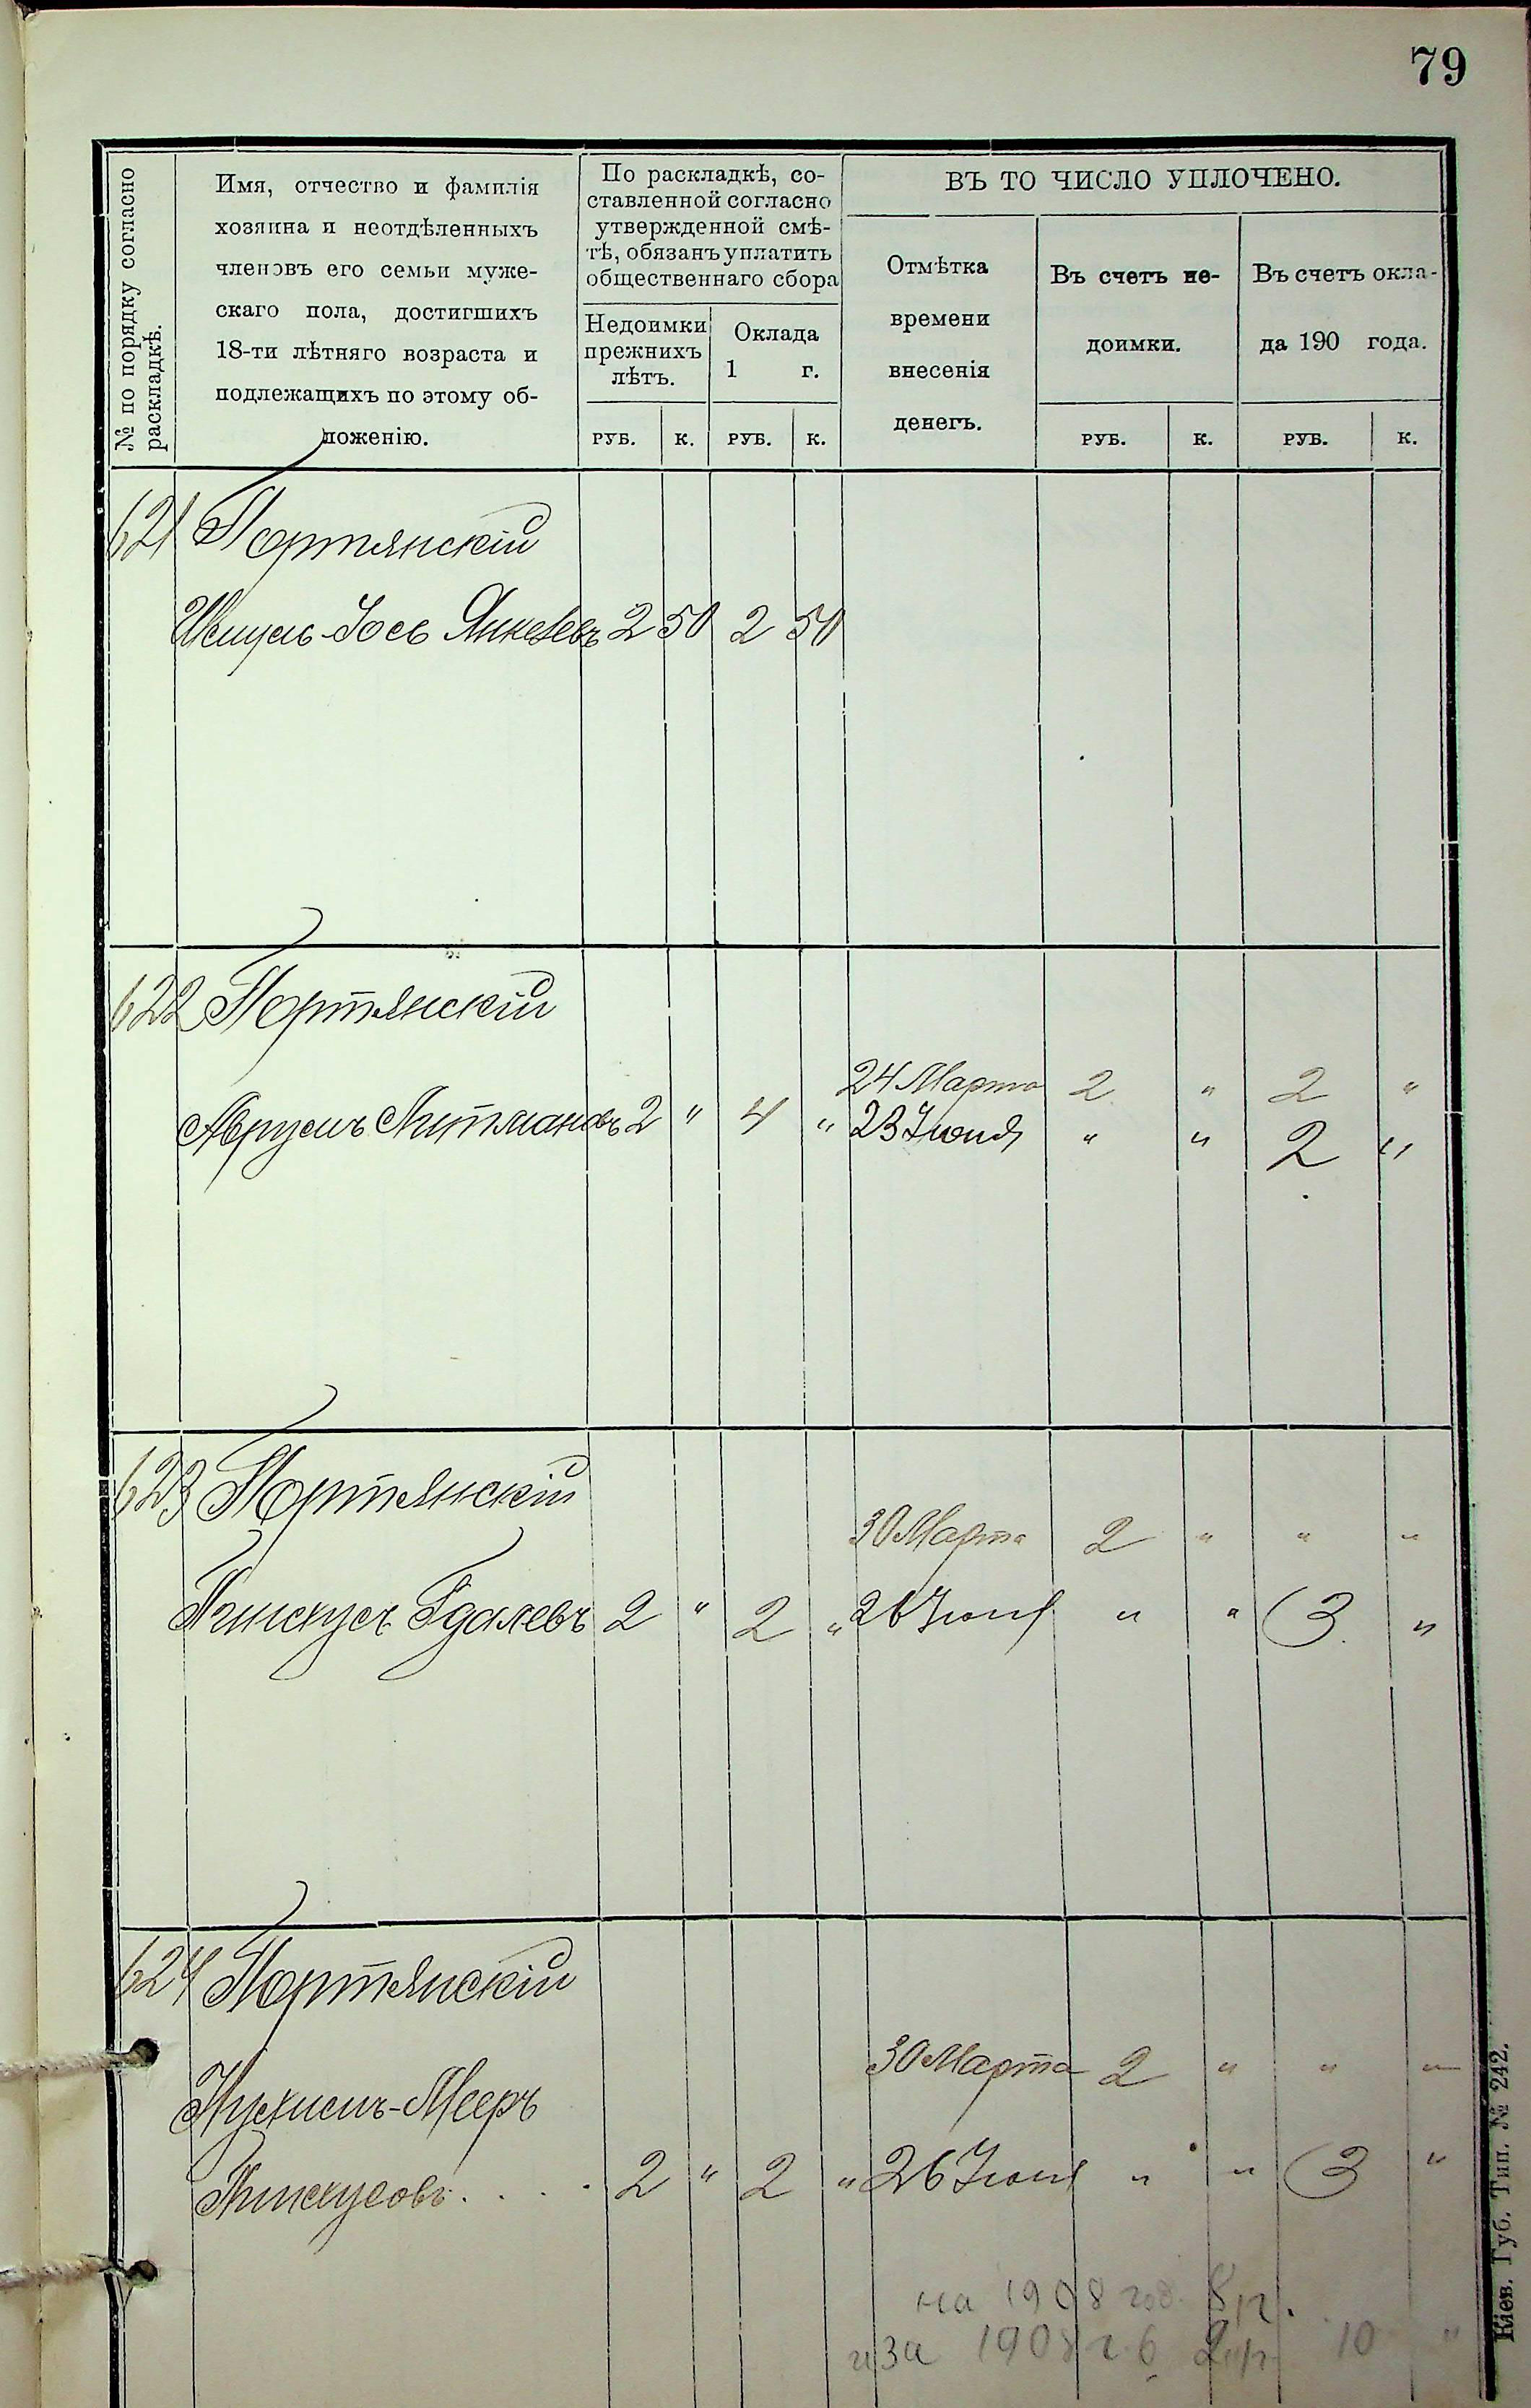 79
№ по порядку согласно
раскладкѣ.
Имя, отчество и фамилія
хозяина и неотдѣленныхъ
членовъ его семьи муже-
скаго пола, достигшихъ
18-ти лѣтняго возраста и
подлежащихъ по этому об-
ложенію.
По раскладкѣ, со-
ставленной согласно
утвержденной смѣ-
тѣ, обязанъ уплатить
общественнаго сбора
Недоимки
прежнихъ
лѣтъ.
Оклада
1 г.
РУБ. К. РУБ. К.
ВЪ ТО ЧИСЛО УПЛОЧЕНО.
Отмѣтка
времени
внесенія
денегъ.
Въ счетъ не-
доимки.
Въ счетъ окла-
да 190 года.
РУБ. К. РУБ. К.
621 Портянскій
Шмуль-Іось Янкелевъ 2 50 2 50
622 Портянскій
24 Марта 2 " 2 "
Аврумъ Литмановъ 2 " 4 " 23 Іюня " " 2 "
623 Портянскій
30 Марта 2 " " "
Пинхусъ Гдалевъ 2 " 2 " 26 Іюня " " 3 "
624 Портянскій
30 Марта 2 " " "
Нухимъ-Мееръ
Пинхусовъ . . . . 2 " 2 " 26 Іюня " " 3 "
на 1908 год. 8 р.
10 "
Кіев. Губ. Тип. № 242.